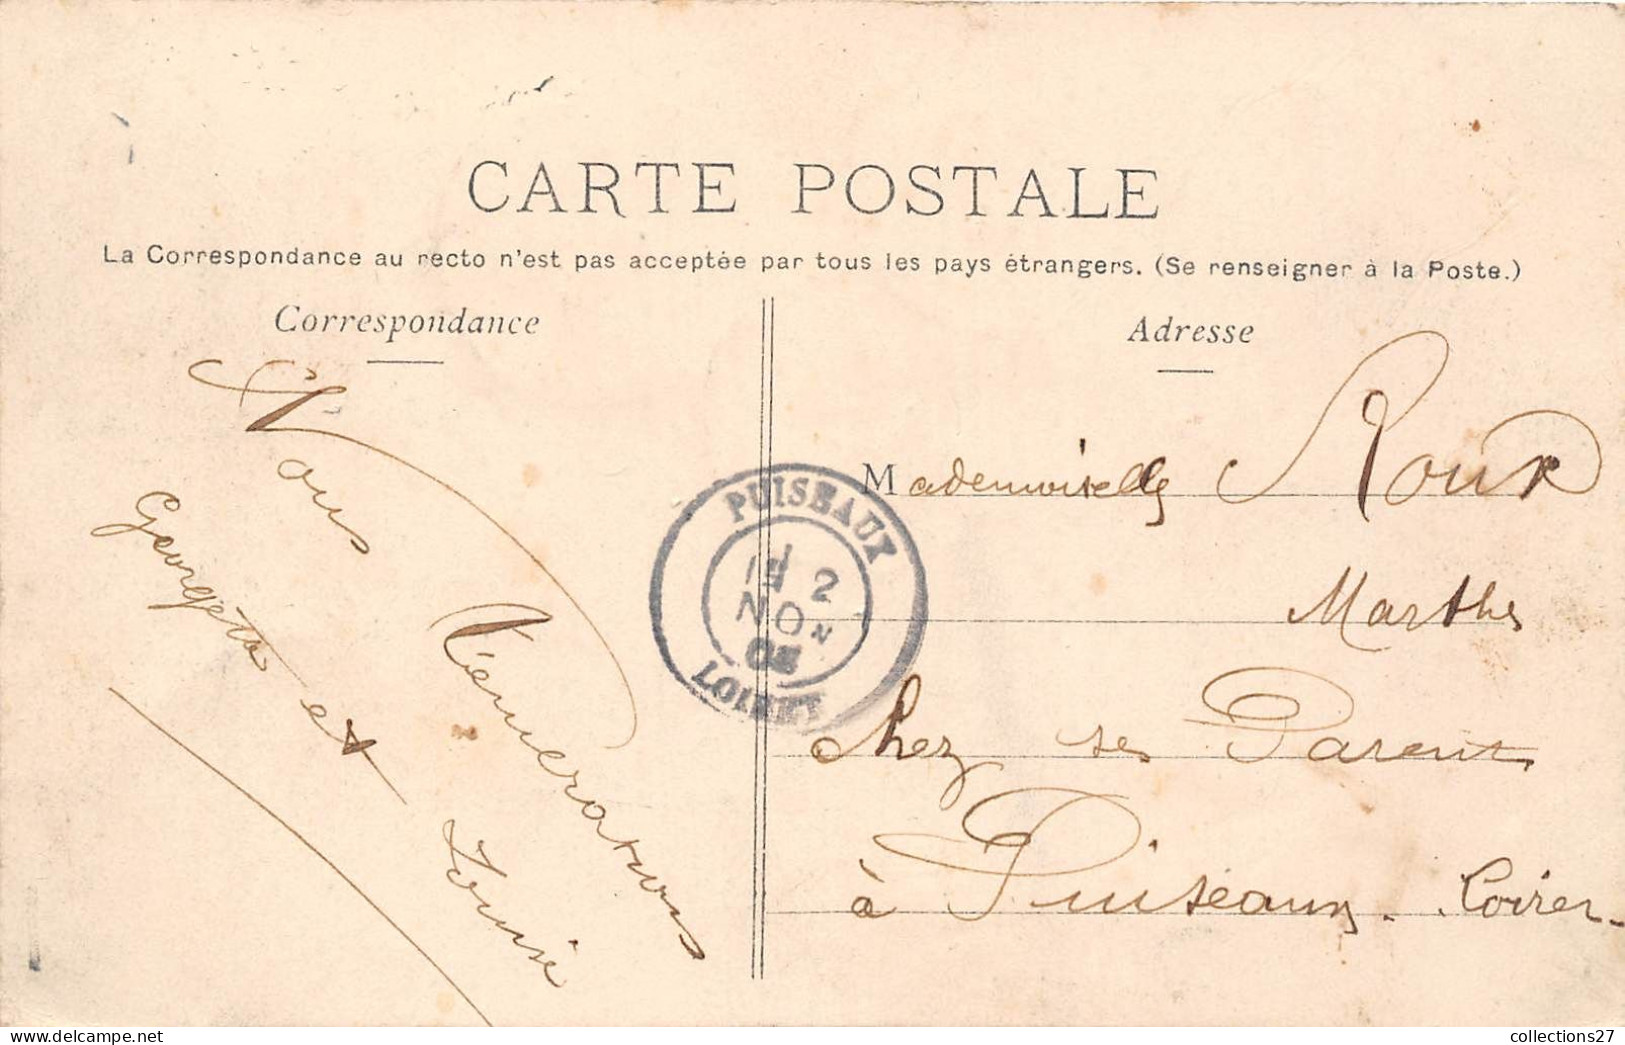 CARTE POSTALE
La Correspondance au recto n'est pas acceptée par tous les pays étrangers. (Se renseigner à la Poste.)
Correspondance
Nous
Georgette et Louise
Adresse
Mademoiselle Roux
Marthe
chez ses Parents
à Puiseaux. Loiret.
PUISEAUX
2
NO
LOIRET
collections27